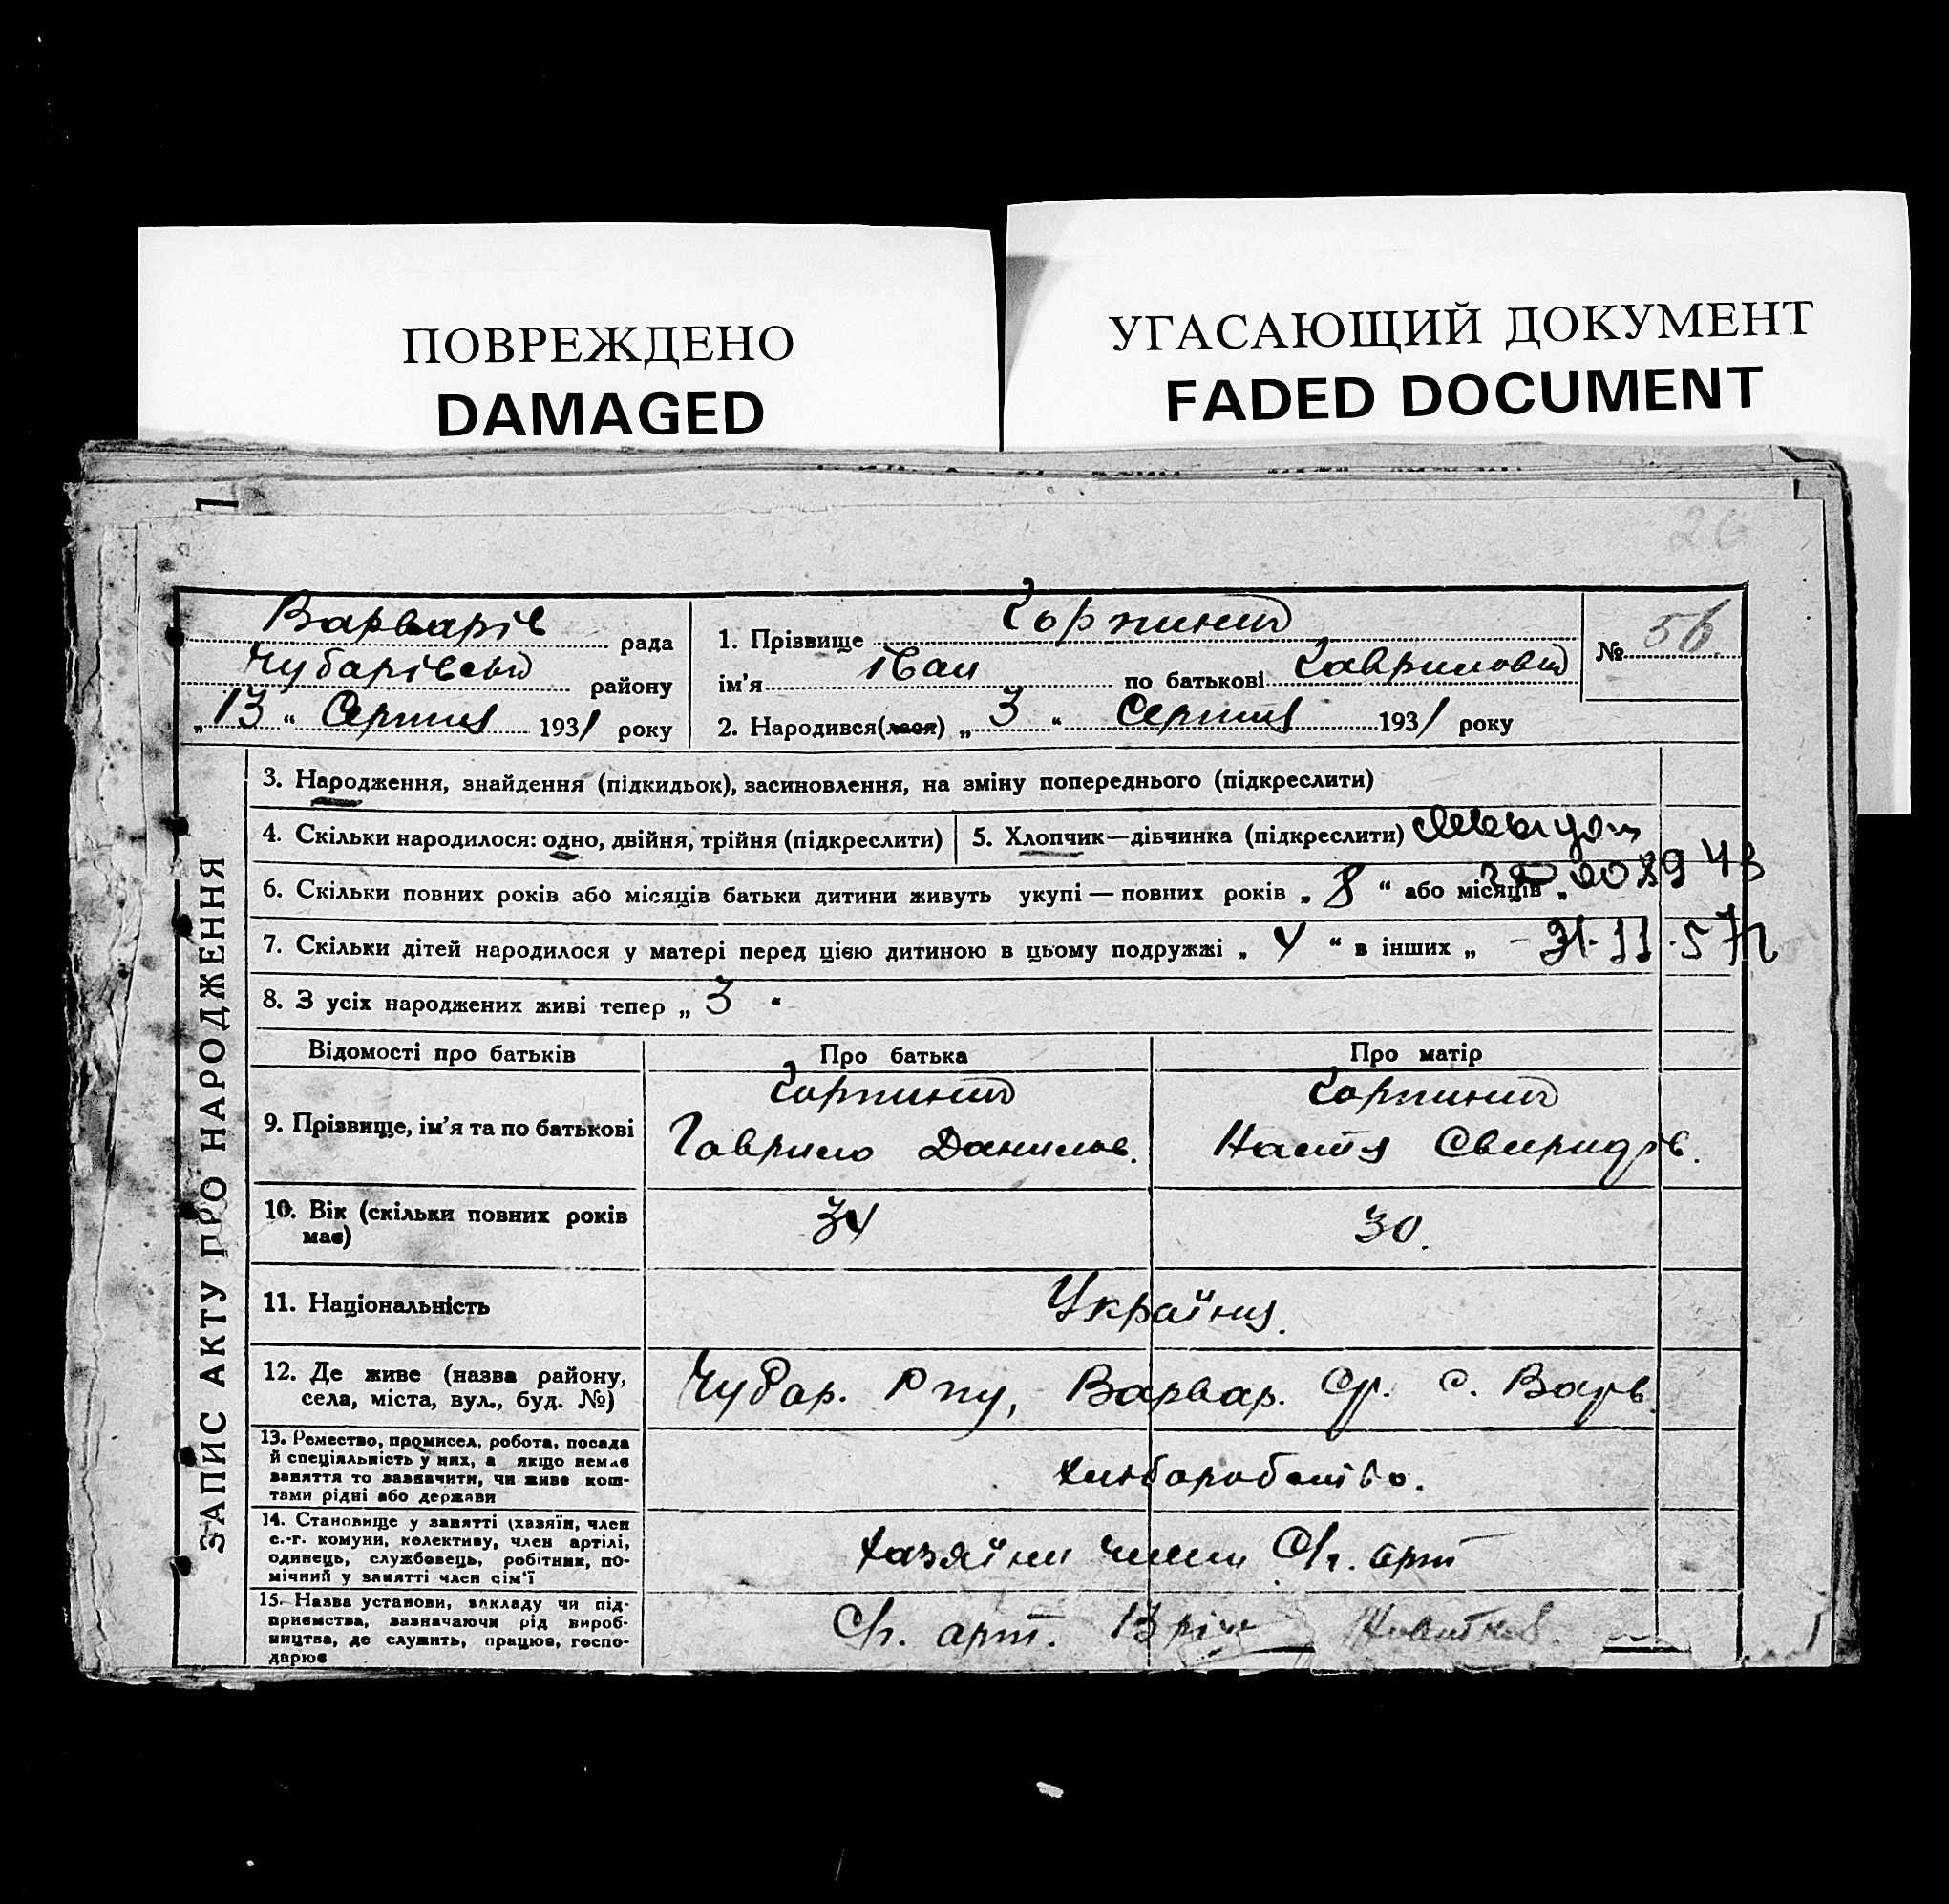 ПОВРЕЖДЕНО
DAMAGED
УГАСАЮЩИЙ ДОКУМЕНТ
FADED DOCUMENT
26
Варварів рада
Чубарівськ района району
„13“ Серпня 1931 року
1. Прізвище Горпинич
ім’я Іван по батькові Гаврилович
2. Народився(лася) „3“ Серпня 1931 року
№ 56
ЗАПИС АКТУ ПРО НАРОДЖЕННЯ
3. Народження, знайдення (підкидьок), засиновлення, на зміну попереднього (підкреслити)
4. Скільки народилося: одно, двійня, трійня (підкреслити)
5. Хлопчик—дівчинка (підкреслити)
6. Скільки повних років або місяців батьки дитини живуть укупі — повних років „8“ або місяців „
7. Скільки дітей народилося у матері перед цією дитиною в цьому подружжі „4“ в інших „ –
8. З усіх народжених живі тепер „3“
Відомості про батьків Про батька Про матір
9. Прізвище, ім’я та по батькові
Горпинич
Гаврило Данилов.
Горпинич
Настя Свиридів.
10. Вік (скільки повних років має)
34 30.
11. Національність
Україн
12. Де живе (назва району,
села, міста, вул., буд. №)
Чубар. Р-ну, Варвар. с. Варв.
13. Ремество, промисел, робота, посада
й спеціяльність у них, а якщо немає
заняття то зазначити, чи живе кош-
тами рідні або держави
хліборобство.
14. Становище у занятті (хазяїн, член
с.-г. комуни, колективу, член артілі,
одинець, службовець, робітник, по-
мічний у занятті член сім’ї
хазяїни члени С/г. арт
15. Назва установи, закладу чи під-
приємства, зазначаючи рід вироб-
ництва, де служить, працює, госпо-
дарює
С/г. арт. 13 річч